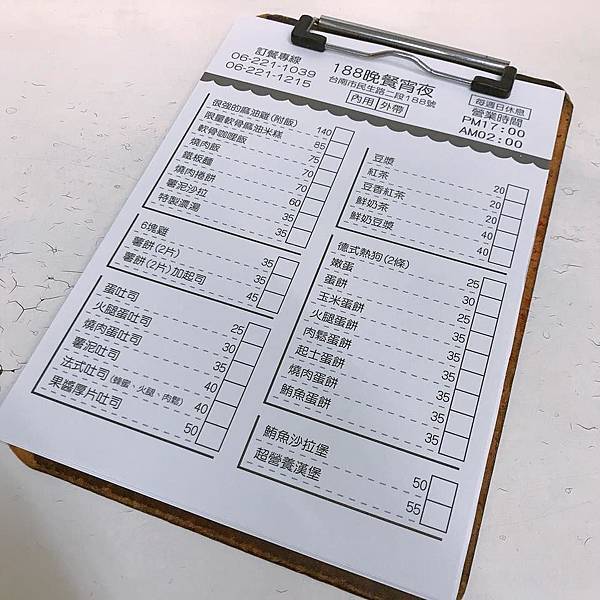 訂餐專線
06-221-1039
06-221-1215
188晚餐宵夜
台南市民生路二段188號
內用 外帶
每週日休息
營業時間
PM17:00
AM02:00
很強的麻油雞(附飯) 140
限量軟骨麻油米糕 85
軟骨咖哩飯 75
燒肉飯 70
鐵板麵 70
燒肉捲餅 60
薯泥沙拉 35
特製濃湯 35
6塊雞 35
薯餅(2片) 35
薯餅(2片)加起司 45
蛋吐司 25
火腿蛋吐司 30
燒肉蛋吐司 35
薯泥吐司 40
法式吐司(蜂蜜、火腿、肉鬆) 40
果醬厚片吐司 50
豆漿 20
紅茶 20
豆香紅茶 20
鮮奶茶 40
鮮奶豆漿 40
德式熱狗(2條) 25
嫩蛋 30
蛋餅 25
玉米蛋餅 35
火腿蛋餅 35
肉鬆蛋餅 35
起士蛋餅 35
燒肉蛋餅 35
鮪魚蛋餅 35
鮪魚沙拉堡 50
超營養漢堡 55